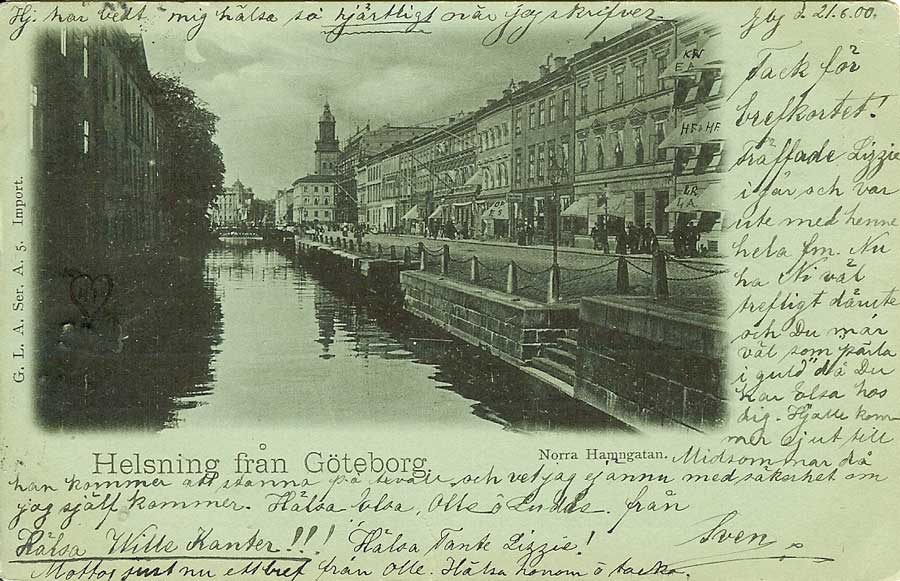 Hj. har bedt mig hälsa så hjärtligt när jag skrifver.
Gbg d. 21.6.00.
Tack för
brefkortet!
Träffade Lizzie
i går och var
ute med henne
hela fm. Nu
ha Ni väl
trefligt därute
och Du mår
väl som pärla
i guld" då Du
har Elsa hos
dig. Hjalle kom-
mer ej ut till
Midsommar då
han kommer att stanna på och vet jag ej ännu med säkerhet om
jag själf kommer. Hälsa Elsa, Olle o från
Sven
Hälsa Wille Kanter!!! Hälsa Tante Lizzie!
Mottog just nu ett bref från Olle. Hälsa honom o tacka.
Helsning från Göteborg.
Norra Hamngatan.
G. L. A. Ser. A. 5. Import.